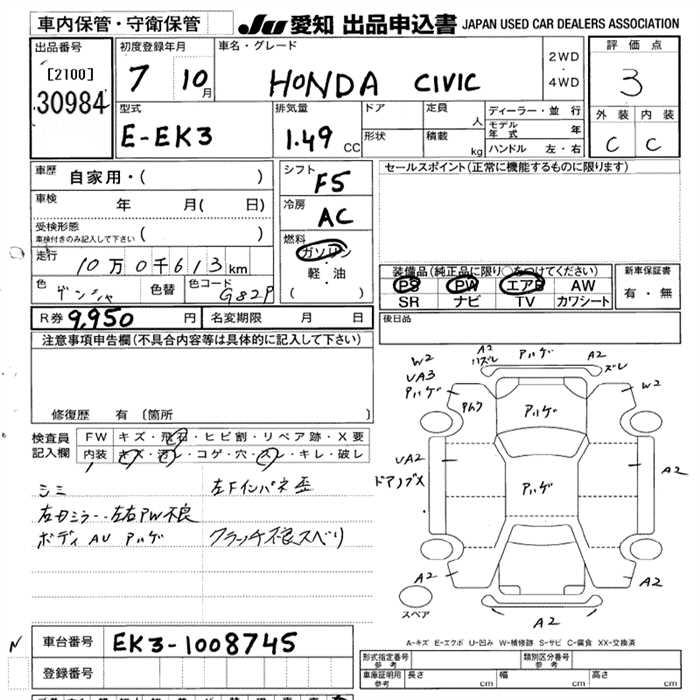 車内保管・守衛保管
JU 愛知 出品申込書 JAPAN USED CAR DEALERS ASSOCIATION
出品番号
[2100]
30984
初度登録年月
7 10月
車名・グレード
HONDA CIVIC
2WD
・
4WD
評価点
3
外装 内装
C C
型式
E-EK3
排気量
1.49 CC
ドア
形状
定員 人
積載 kg
ディーラー・並行
モデル年式 年
ハンドル 左・右
車歴 自家用・( )
車検 年 月( 日)
受検形態
車検付きのみ記入して下さい ( )
走行 10万0千613km
色 ゲンシャ 色替 色コード G82P
シフト
F5
冷房
AC
燃料
ガソリン
・
軽・油
( )
セールスポイント(正常に機能するものに限ります)
装備品(純正品に限り○をつけてください)
PS PW エアB AW
SR ナビ TV カワシート
新車保証書
有・無
後日品
R券 9,950円 名変期限 月 日
注意事項申告欄(不具合内容等は具体的に記入して下さい)
修復歴 有 〔箇所 〕
検査員記入欄
FW キズ・飛石・ヒビ割・リペア跡・X要
内装 キズ・汚レ・コゲ・穴・スレ・キレ・破レ
シミ 左Fインパネ歪
左右ミラー・左右PW不良
ボディ AU アルゲ クラッチ不良スベリ
W2
UA3
アルゲ
A2
ハズレ
アルゲ
A2
ズレ
W2
アルゲ
UA2
ドアノブX
アルゲ
A2
A2
A2
A2
スペア
A-キズ E-エクボ U-凹み W-補修跡 S-サビ C-腐食 XX-交換済
車台番号 EK3-1008745
登録番号
形式指定番号
参考
類別区分番号
参考
車庫証明用
参考
長さ cm 幅 cm 高さ cm